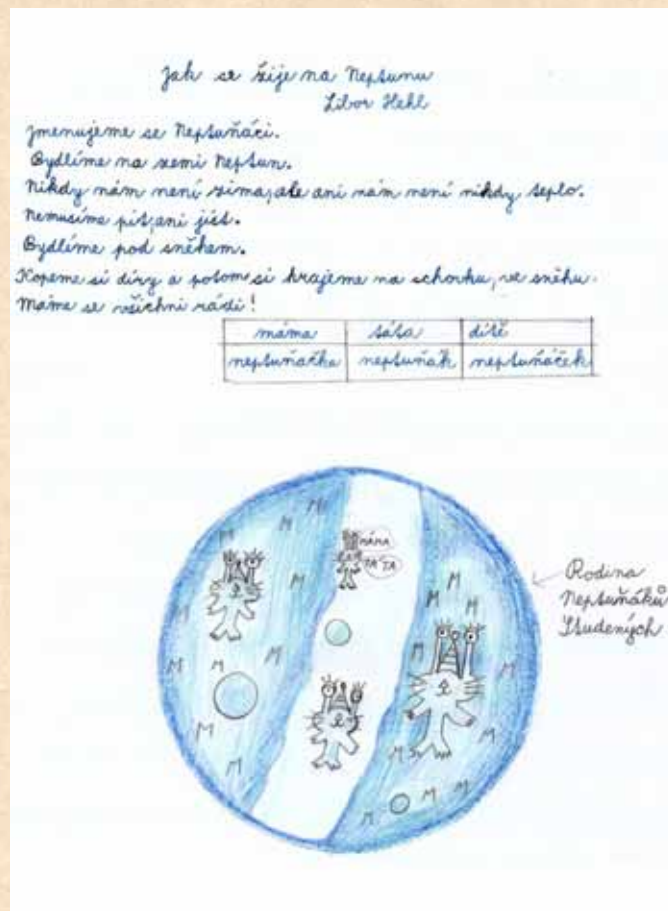 Jak se žije na Neptunu
Libor Hehl
Jmenujeme se Neptuňáci.
Bydlíme na zemi Neptun.
Nikdy nám není zima, ale ani nám není nikdy teplo.
Nemusíme pít, ani jíst.
Bydlíme pod sněhem.
Kopeme si díry a potom si hrajeme na schovku, ve sněhu.
Máme se všichni rádi!
máma táta dítě
neptuňačka neptuňák neptuňáček
MÁMA
TÁTA
Rodina
Neptuňáků
Studených